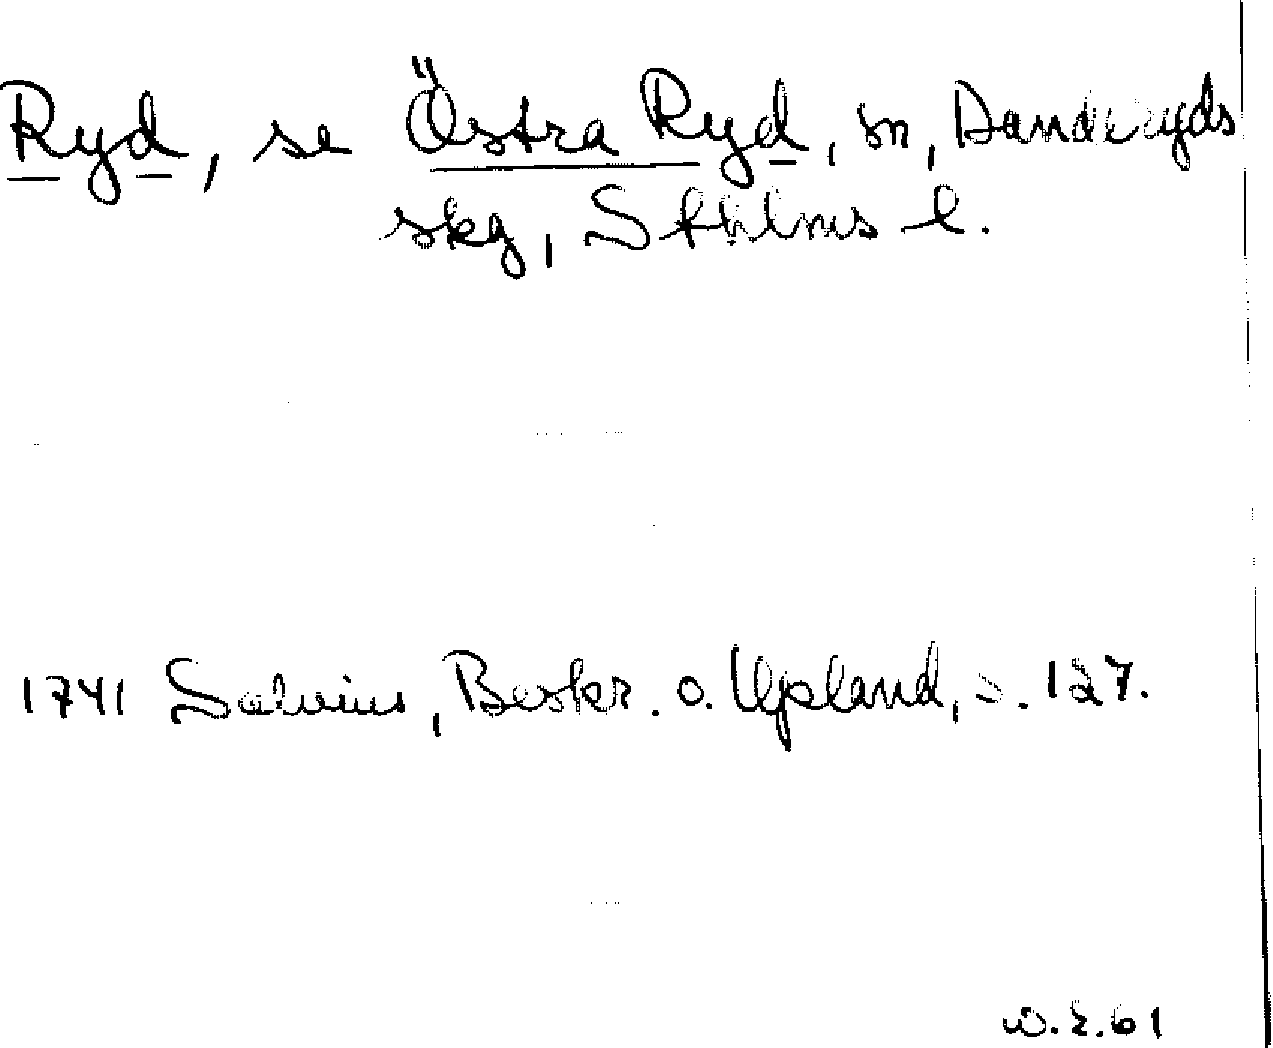 Ryd, se Östra Ryd, sn, Danderyds
skg, Sthlms l.
1741 Salvius, Beskr. o. Upland, s. 127.
W.E.61